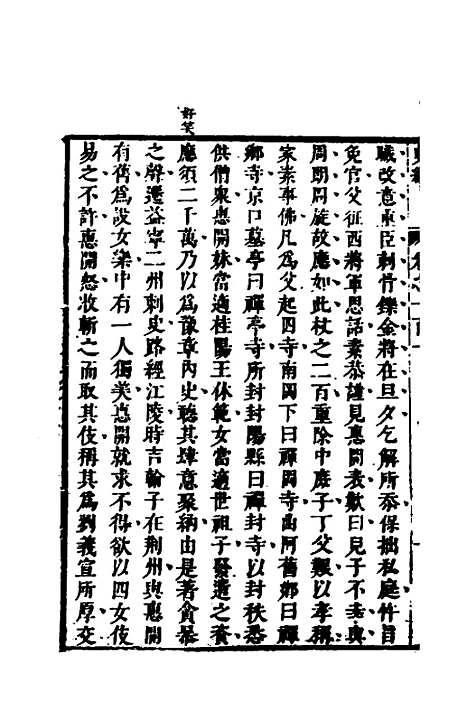 職改意重臣刺骨鑠金將在旦夕乞解所忝保拙私庭件旨
免官父征西將軍思話素恭謹見惠開表歎曰見子不幸與
周朗周旋故應如此杖之二百重除中庶子丁父艱以孝稱
家素事佛凡爲父起四寺南岡下曰禪岡寺曲阿舊鄉曰禪
鄉寺京口墓亭曰禪亭寺所封封陽縣曰禪封寺以封秩悉
供僧衆惠開妹當適桂陽王休範女當適世祖子發遣之資
應須二千萬乃以爲豫章內史聽其肆意聚納由是著貪暴
好笑
之聲遷益寧二州刺史路經江陵時吉翰子在荆州與惠開
有舊爲設女樂中有一人獨美惠開就求不得欲以四女伎
易之不許惠開怒收斬之而取其伎稱其爲劉義宣所厚交